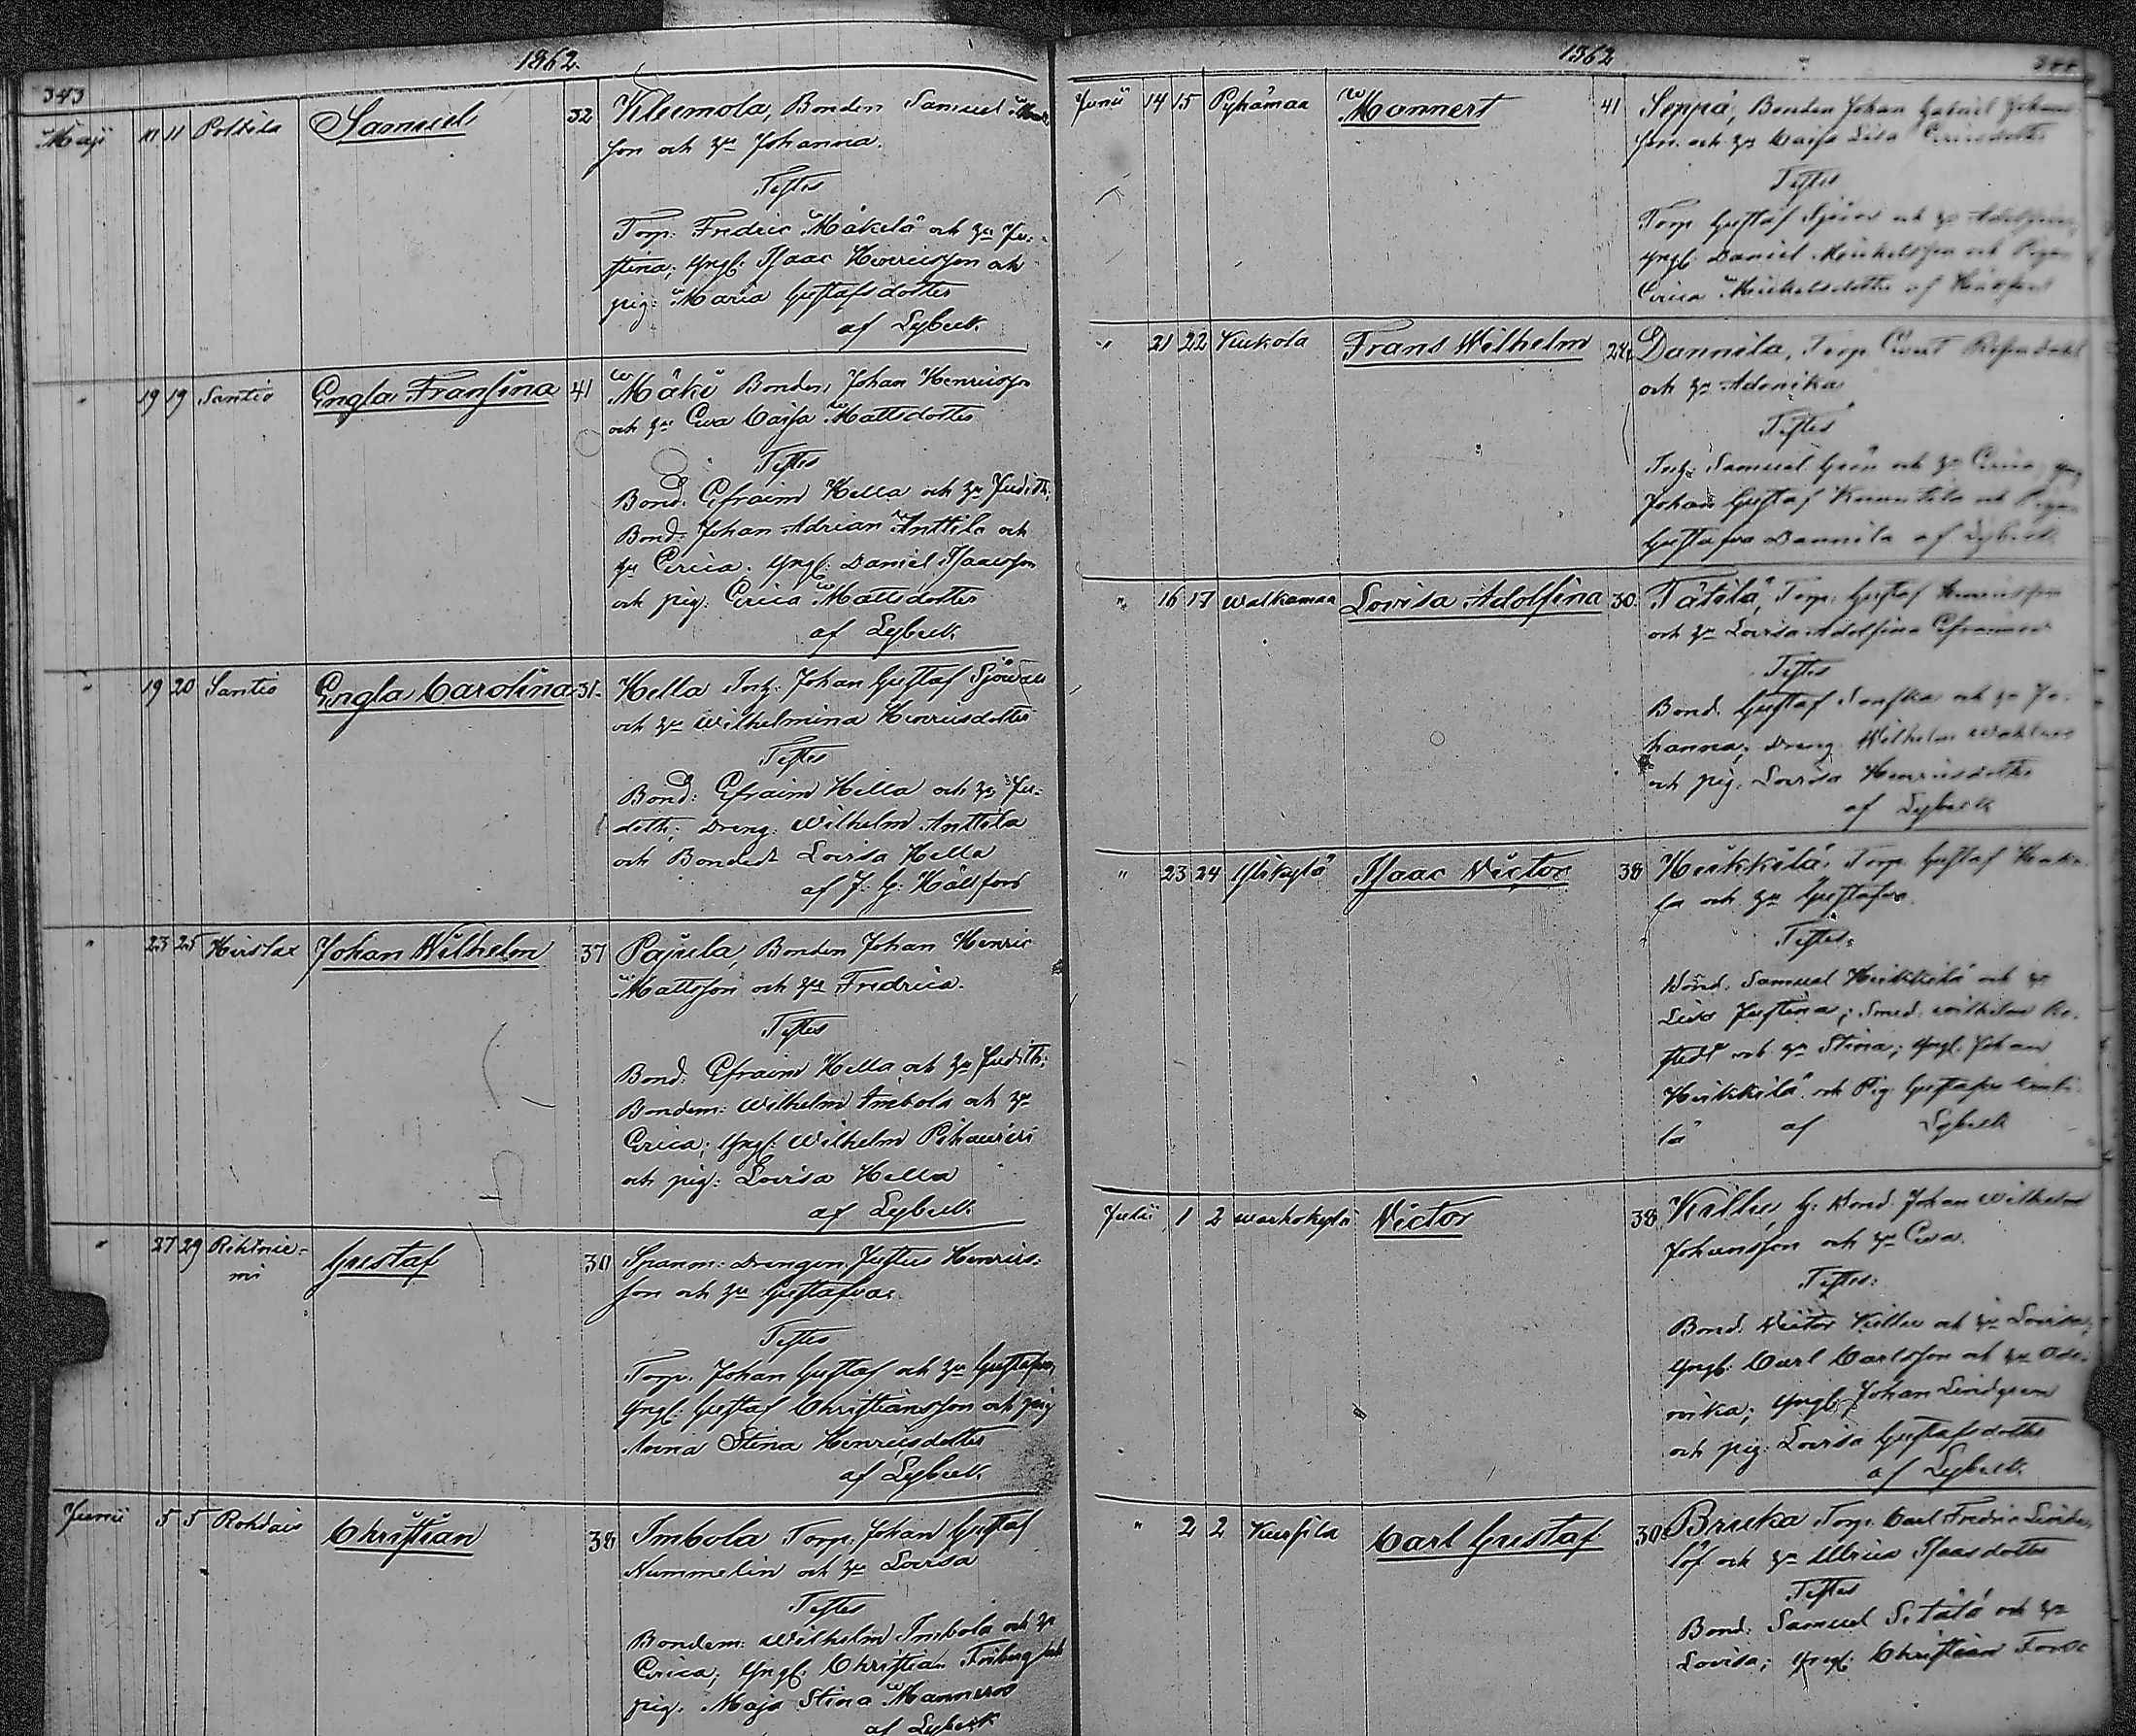 1862
343
Maji 11 11 Polttila Samuel 32 Kleemola, Bonden Samuel
son och hu Johanna.
Testes
Torp: Fredric Mäkelä och hu Ju-
stina; Yngl: Isaac Henricsson och
pig: Maria Gustafsdotter
af Lybeck.
" 19 19 Santio Engla Fransina 41 Mäki Bonden Johan Henricsson
och hu Eva Caisa Mattsdotter
Testes
Bond: Efraim Hella och hu Judith;
Bond: Johan Adrian Anttila och
hu Erica. Yngl: Daniel Isaacsson
och pig: Erica Mattsdotter
af Lybeck.
" 19 20 Santio Engla Carolina 31 Hella Inh: Johan Gustaf Sjövall
och hu Wilhelmina Henricsdotter
Testes
Bond: Efraim Hella och hu Ju-
dith; Dreng: Wilhelm Anttila
och Bondedr Lovisa Hella
af J: G: Hällfors
" 23 25 Hirslax Johan Wilhelm 37 Pajula, Bonden Johan Henric
Mattsson och hu Fredrica.
Testes
Bond: Efraim Hella och hu Judith;
Bondem: Wilhelm Imbola och hu
Erica; Yngl: Wilhelm Pihauveri
och pig: Lovisa Hella
af Lybeck.
" 27 29 Rihtnie-
mi Gustaf 30 Spanm: Drengen Justus Henrics-
son och hu Gustafva.
Testes
Torp. Johan Gustaf och hu Gustafva,
Yngl: Gustaf Christiansson och pig
Anna Stina Henricsdotter
af Lybeck.
Junii 5 5 Rohdais Christian 38 Imbola Torp: Johan Gustaf
Nummelin och hu Lovisa
Testes
Bondem: Wilhelm Imbola och hu
Erica; Yngl: Christian Friberg och
pig. Maja Stina Manneroos
af Lybeck
1862
344
Junii 14 15 Pyhämaa Mannert 41 Seppä, Bonden Johan Gabriel Johans-
son och hu Caisa Lisa Ericsdotter
Testes
Torp Gustaf Sjöroos och hu Adolfina,
Yngl. Daniel Michelsson och Pigan
Erica Michelsdotter af Hällfors
" 21 22 Kukola Frans Wilhelm 24 Dannila, Torp Evert Rosendahl
och hu Adenika
Testes
Inh: Samuel Grön och hu Erica, Yngl
Johan Gustaf och Pigan
Gustafva Dannila af Lybeck
" 16 17 Walkamaa Lovisa Adolfina 30 Tätilä, Torp: Gustaf Henricsson
och hu Lovisa Adolfina Efraimsdr
Testes
Bond. Gustaf och hu Jo-
hanna; Dreng: Wilhelm Wahlroos
och pig: Lovisa Henricsdotter
af Lybeck
" 23 24 Ylikylä Isaac Victor 38 Heikkilä, Torp Gustaf
och hu Gustafva.
Testes:
Bond. Samuel Heikkilä och hu
Lisa Justina; Smed: Wilhelm Ro-
stedt och hu Stina; Yngl: Johan
Heikkilä och Pig Gustafva
lä af Lybeck
Julii 1 2 Warhokylä Victor 38 Killu, G: Bond: Johan Wilhelm
Johansson och hu Eva.
Testes:
Bond. Victor Killu och hu Lovisa,
Yngl: Carl Carlsson och hu Ade-
vika; Yngl: Johan Lindgren
och pig: Lovisa Gustafsdotter
af Lybeck.
" 2 2 Kursila Carl Gustaf 30 Bruka Torp. Carl Fredric Linde-
löf och hu Ulrica Isaacsdotter
Testes
Bond: Samuel Sitälä och hu
Lovisa; Yngl: Christian Forss